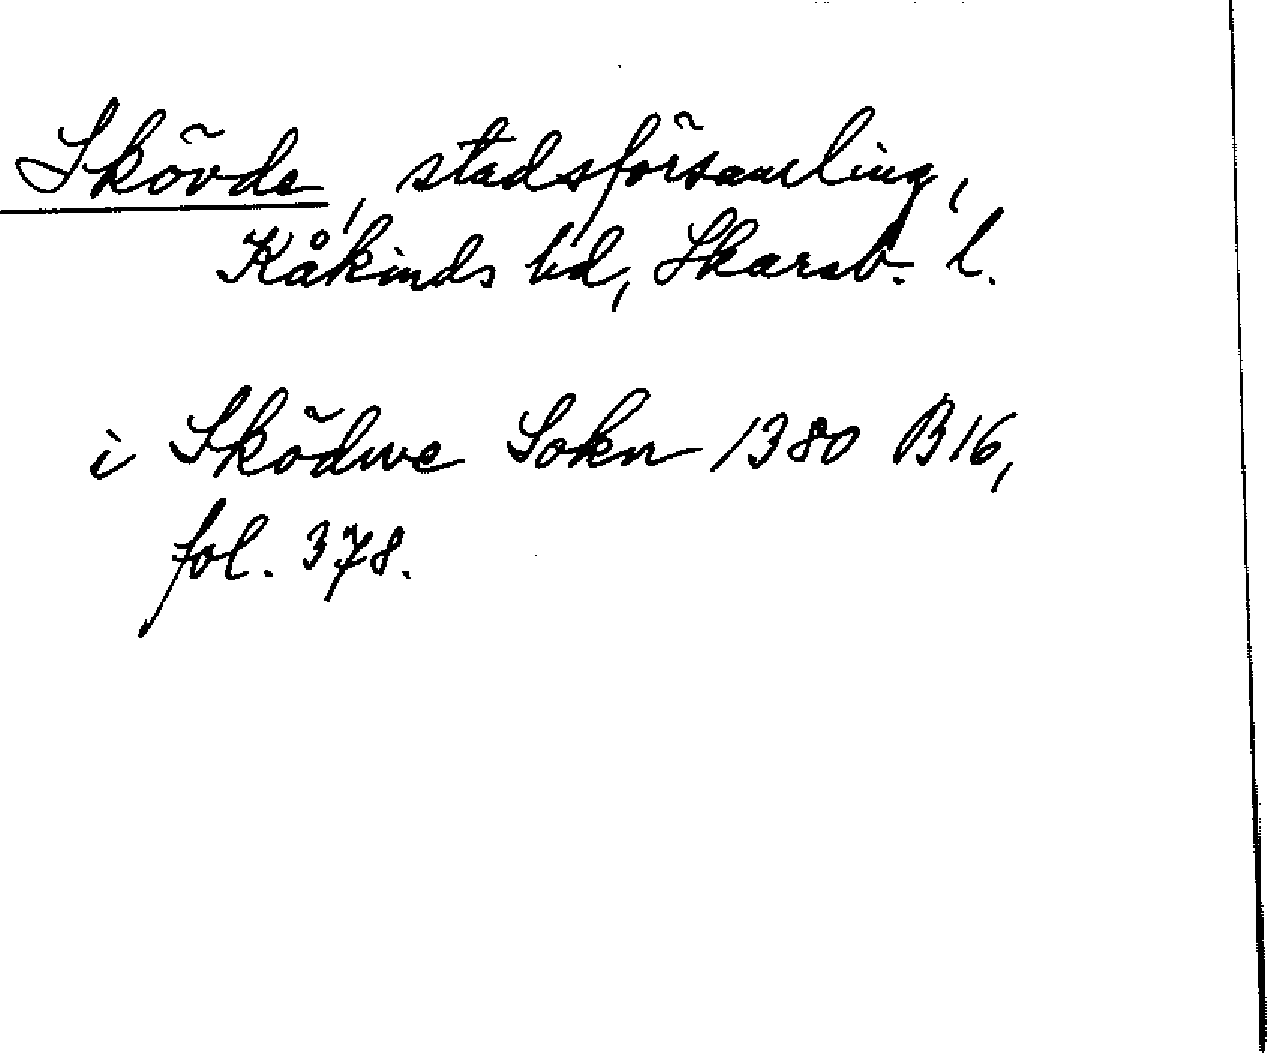 Skövde, stadsförsamling,
Kåkinds hd, Skarab. l.
i Sködwe Sokn 1380 B16,
fol. 378.